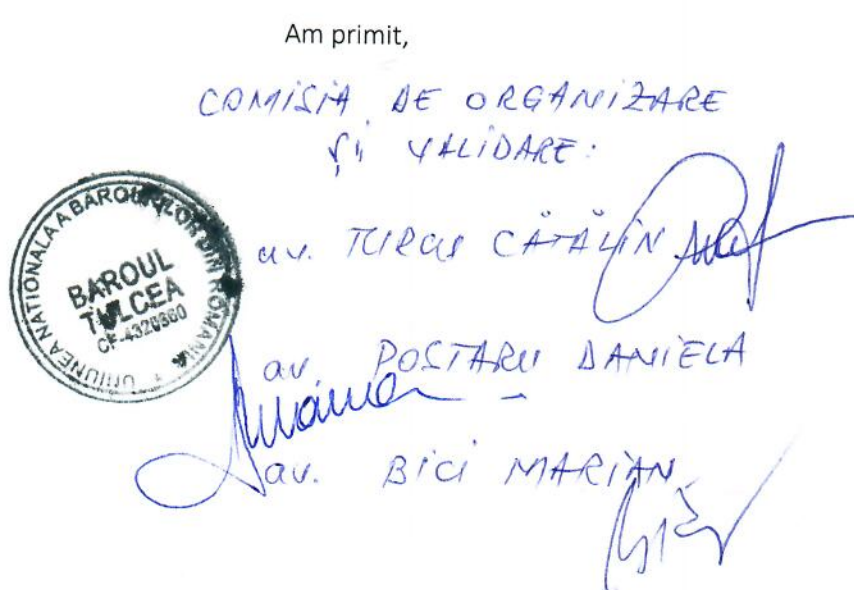 Am primit,
COMISIA DE ORGANIZARE
și VALIDARE:
UNIUNEA NATIONALA A BAROURILOR DIN ROMANIA
BAROUL
TULCEA
CF-4320360
av. TURCU CĂTĂLIN
av. POSTARU DANIELA
av. BICI MARIAN